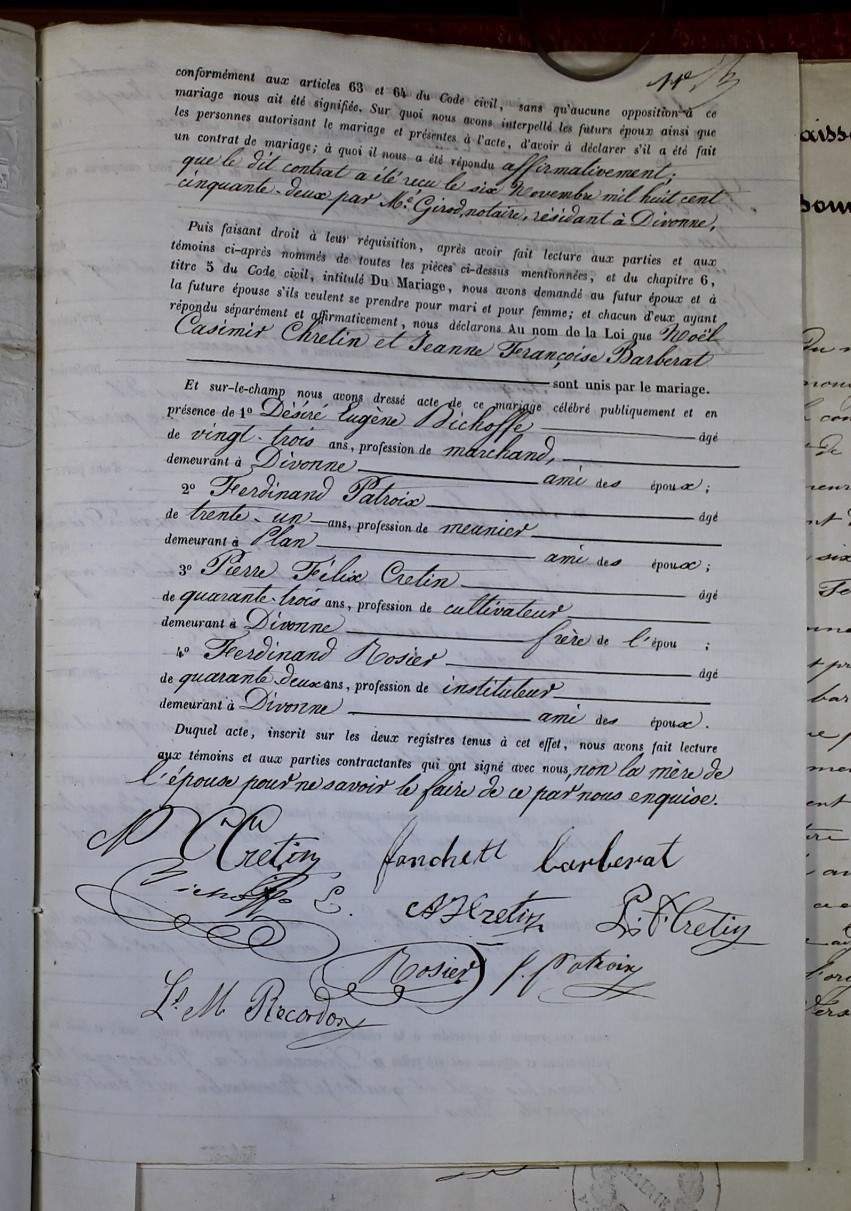 11e
conformément aux articles 63 et 64 du Code civil, sans qu'aucune opposition à ce
mariage nous ait été signifiée. Sur quoi nous avons interpellé les futurs époux ainsi que
les personnes autorisant le mariage et présentes à l'acte, d'avoir à déclarer s'il a été fait
un contrat de mariage; à quoi il nous a été répondu affirmativement;
que le dit contrat a été reçu le six Novembre mil huit cent
cinquante-deux par Me Girod, notaire, résidant à Divonne,
Puis faisant droit à leur réquisition, après avoir fait lecture aux parties et aux
témoins ci-après nommés de toutes les pièces ci-dessus mentionnées, et du chapitre 6,
titre 5 du Code civil, intitulé Du Mariage, nous avons demandé au futur époux et à
la future épouse s'ils veulent se prendre pour mari et pour femme; et chacun d'eux ayant
répondu séparément et affirmativement, nous déclarons Au nom de la Loi que Noël
Casimir Chretin et Jeanne Françoise Barberat
sont unis par le mariage.
Et sur-le-champ nous avons dressé acte de ce mariage célébré publiquement et en
présence de 1o Désiré Eugène Bichoffe âgé
de vingt-trois ans, profession de marchand,
demeurant à Divonne ami des époux;
2o Ferdinand Patroix âgé
de trente-un ans, profession de meunier
demeurant à Plan ami des époux;
3o Pierre Félix Cretin âgé
de quarante-trois ans, profession de cultivateur
demeurant à Divonne frère de l'épou ;
4o Ferdinand Rosier âgé
de quarante-deux ans, profession de instituteur
demeurant à Divonne ami des époux.
Duquel acte, inscrit sur les deux registres tenus à cet effet, nous avons fait lecture
aux témoins et aux parties contractantes qui ont signé avec nous, non la mère de
l'épouse pour ne savoir le faire de ce par nous enquise.
Cretin fanchett barberat
Bichoffe E. Cretin P. F. Cretin
Rosier f. patroix
Ls M Recordon